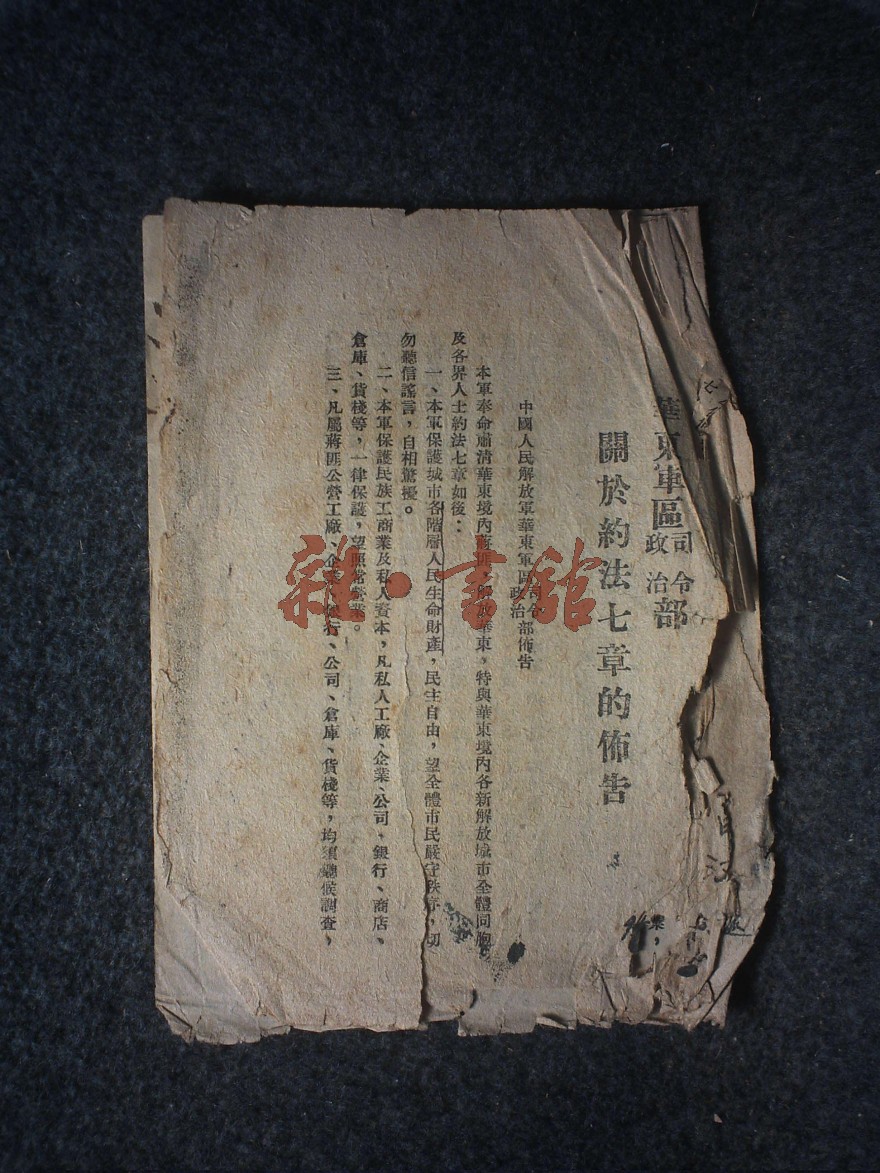 華東軍區司令政治部
關於約法七章的佈告
中國人民解放軍華東軍區司令政治部佈告
本軍奉命肅清華東境內蔣匪,解放華東,特與華東境內各新解放城市全體同胞
及各界人士約法七章如後:
一、本軍保護城市各階層人民生命財產,民主自由,望全體市民嚴守秩序,切
勿聽信謠言,自相驚擾。
二、本軍保護民族工商業及私人資本,凡私人工廠、企業、公司、銀行、商店、
倉庫、貨棧等,一律保護,望照常營業。
三、凡屬蔣匪公營工廠、企業、銀行、公司、倉庫、貨棧等,均須聽候調查,
雜·書館